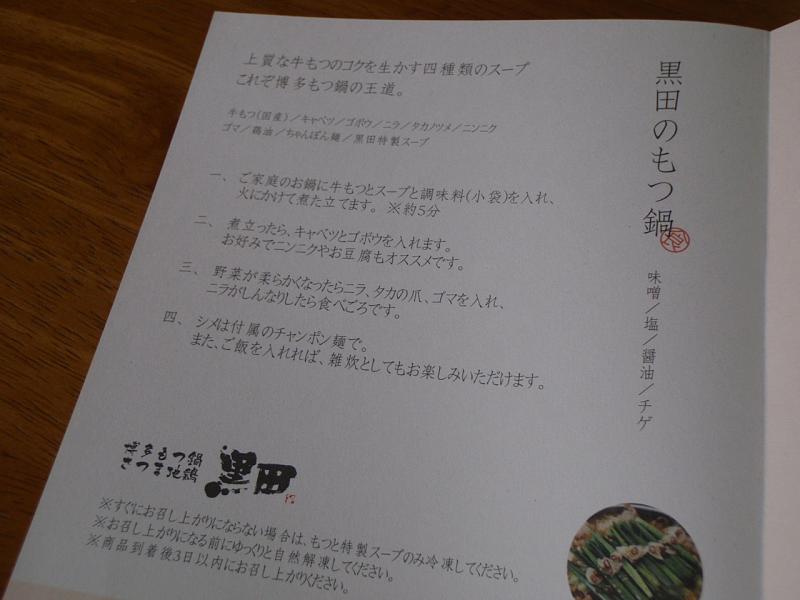 黒田のもつ鍋
味噌/塩/醤油/チゲ
上質な牛もつのコクを生かす四種類のスープ
これぞ博多もつ鍋の王道。
牛もつ(国産)/キャベツ/ゴボウ/ニラ/タカノツメ/ニンニク
ゴマ/鶏油/ちゃんぽん麺/黒田特製スープ
一、ご家庭のお鍋に牛もつとスープと調味料(小袋)を入れ、
火にかけて煮た立てます。※約5分
二、煮立ったら、キャベツとゴボウを入れます。
お好みでニンニクやお豆腐もオススメです。
三、野菜が柔らかくなったらニラ、タカの爪、ゴマを入れ、
ニラがしんなりしたら食べごろです。
四、シメは付属のチャンポン麺で。
また、ご飯を入れれば、雑炊としてもお楽しみいただけます。
博多もつ鍋
さつま地鶏
黒田
※すぐにお召し上がりにならない場合は、もつと特製スープのみ冷凍してください。
※お召し上がりになる前にゆっくりと自然解凍してください。
※商品到着後3日以内にお召し上がりください。